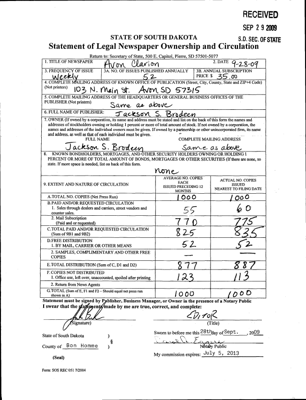 RECEIVED
SEP 29 2009
S.D. SEC. OF STATE
STATE OF SOUTH DAKOTA
Statement of Legal Newspaper Ownership and Circulation
Return to: Secretary of State, 500 E. Capitol, Pierre, SD 57501-5077
1. TITLE OF NEWSPAPER Avon Clarion
2. DATE 9-28-09
3. FREQUENCY OF ISSUE Weekly
3A. NO. OF ISSUES PUBLISHED ANNUALLY 52
3B. ANNUAL SUBSCRIPTION PRICE $ 35.00
4. COMPLETE MAILING ADDRESS OF KNOWN OFFICE OF PUBLICATION (Street, City, County, State and ZIP+4 Code)
(Not printers) 103 N. Main St. Avon SD 57315
5. COMPLETE MAILING ADDRESS OF THE HEADQUARTERS OR GENERAL BUSINESS OFFICES OF THE
PUBLISHER (Not printers) Same as above
6. FULL NAME OF PUBLISHER: Jackson S. Brodeen
7. OWNER (If owned by a corporation, its name and address must be stated and also on the back of this form the names and
addresses of stockholders owning or holding 1 percent or more of total amount of stock. If not owned by a corporation, the
names and addresses of the individual owners must be given. If owned by a partnership or other unincorporated firm, its name
and address, as well as that of each individual must be given.
FULL NAME
COMPLETE MAILING ADDRESS
Jackson S. Brodeen Same as above
8. KNOWN BONDHOLDERS, MORTGAGES, AND OTHER SECURITY HOLDERS OWNING OR HOLDING 1
PERCENT OR MORE OF TOTAL AMOUNT OF BONDS, MORTGAGES OR OTHER SECURITIES (If there are none, so
state. If more space is needed, list on back of this form.
none
9. EXTENT AND NATURE OF CIRCULATION
AVERAGE NO. COPIES
EACH
ISSUED PRECEDING 12
MONTHS
ACTUAL NO. COPIES
ISSUED
NEAREST TO FILING DATE
A. TOTAL NO. COPIES (Net Press Run) 1000 1000
B. PAID AND/OR REQUESTED CIRCULATION
1. Sales through dealers and carriers, street vendors and
counter sales. 55 60
2. Mail Subscription
(Paid and or requested) 770 775
C. TOTAL PAID AND/OR REQUESTED CIRCULATION
(Sum of 9B1 and 9B2) 825 835
D. FREE DISTRIBUTION
1. BY MAIL, CARRIER OR OTHER MEANS 52 52
2. SAMPLES, COMPLIMENTARY AND OTHER FREE
COPIES — —
E. TOTAL DISTRIBUTION (Sum of C, D1 and D2) 877 887
F. COPIES NOT DISTRIBUTED
1. Office use, left over, unaccounted, spoiled after printing 123 113
2. Return from News Agents
G. TOTAL (Sum of E, F1 and F2 - Should equal net press run
shown in A) 1000 1000
Statement must be signed by Publisher, Business Manager, or Owner in the presence of a Notary Public
I swear that the statements made by me are true, correct, and complete:
Editor
(Signature) (Title)
State of South Dakota )
County of Bon Homme )
Sworn to before me this 28th day of Sept. , 2009
Notary Public
(Seal)
My commission expires: July 5, 2013
Form: SOS REC 051 7/2004